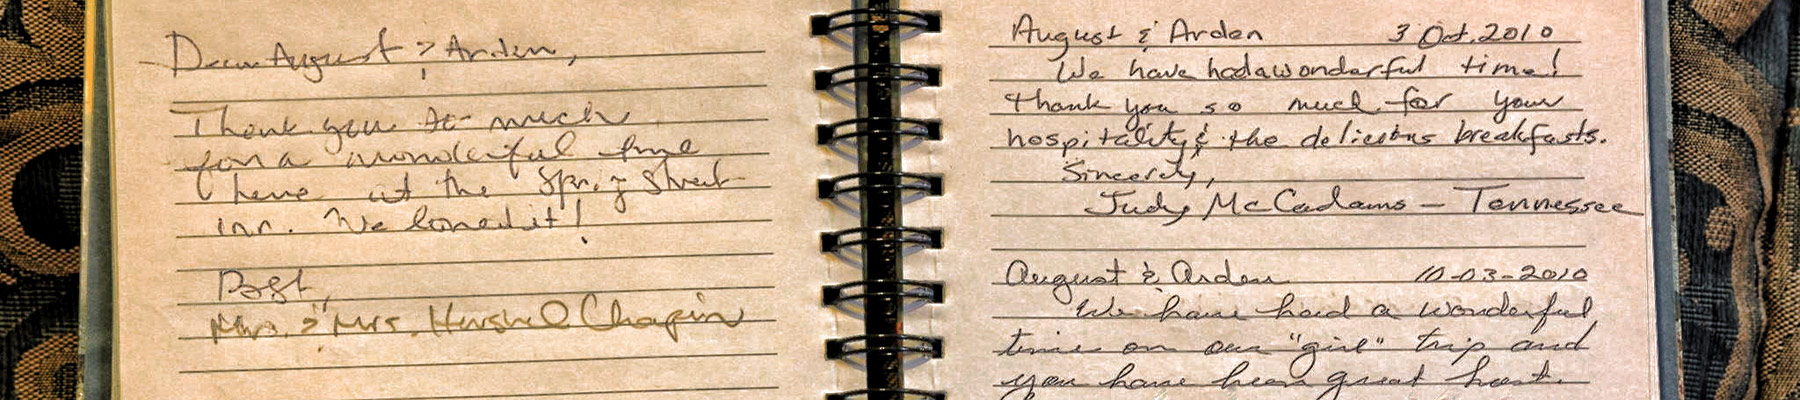 Dear August & Arden,
Thank you so much
for a wonderful time
here at the Spring Street
inn. We loved it!
Best,
Mr. & Mrs. Hershel Chapin
August & Arden 3 Oct. 2010
We have had a wonderful time!
Thank you so much for your
hospitality & the delicious breakfasts.
Sincerely,
Judy McCadams - Tennessee
August & Arden 10-03-2010
We have had a wonderful
time on our "girl" trip and
you have been great host.